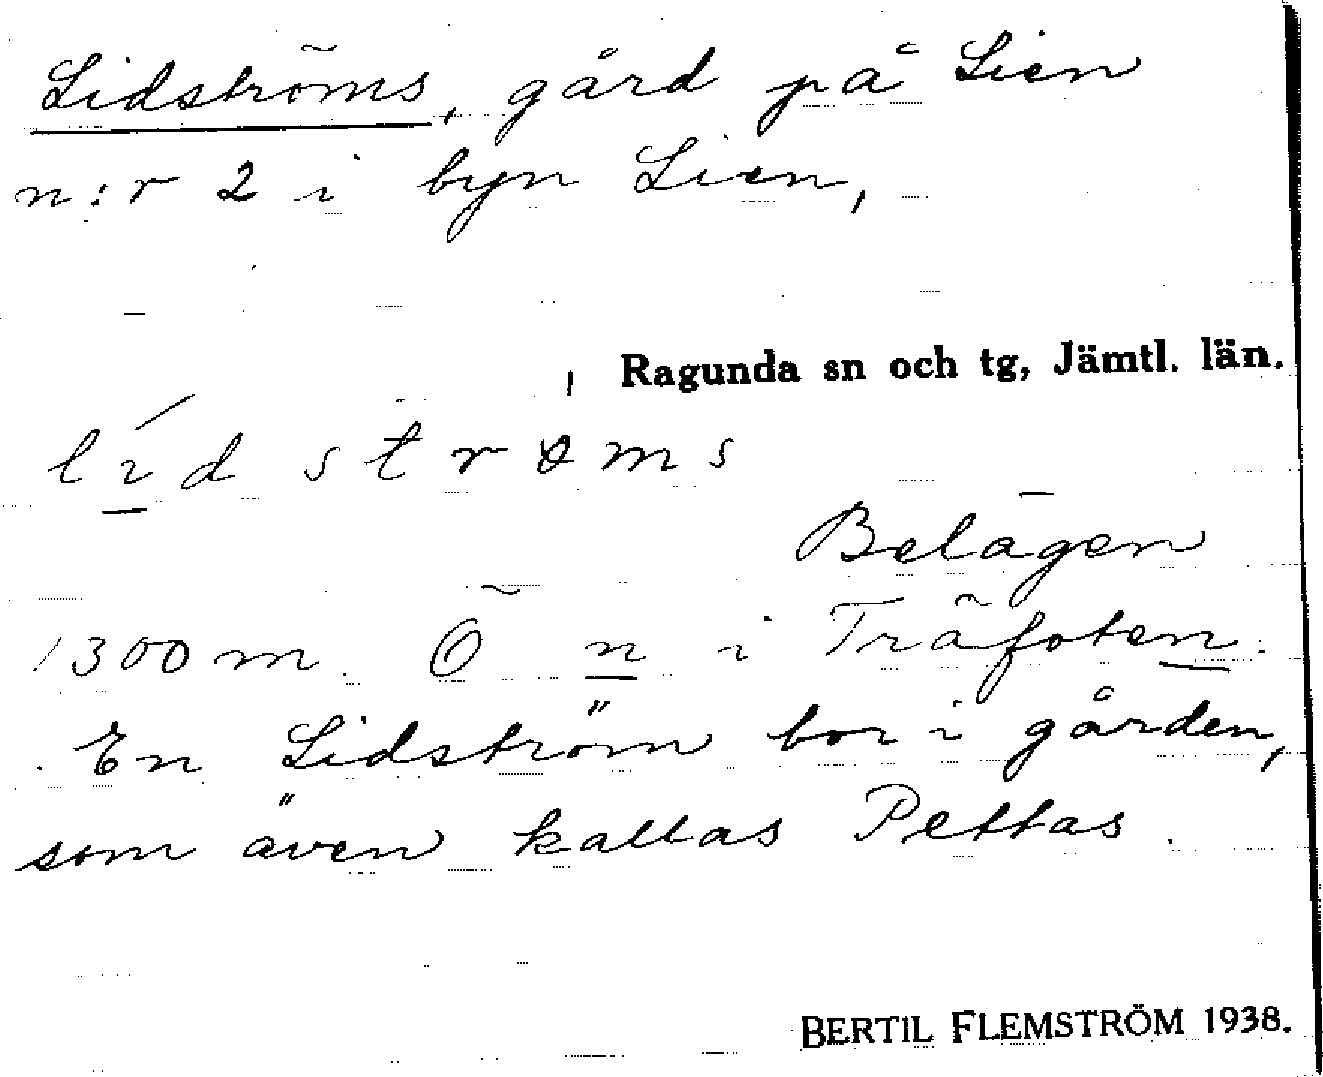 Lidströms, gård på Lien
n:r 2 i byn Lien,
, Ragunda sn och tg, Jämtl. län.
lìd strøms
Belägen
1300 m. Ö n i Träfoten.
En Lidström bor i gården,
som även kallas Pettas.
BERTIL FLEMSTRÖM 1938.